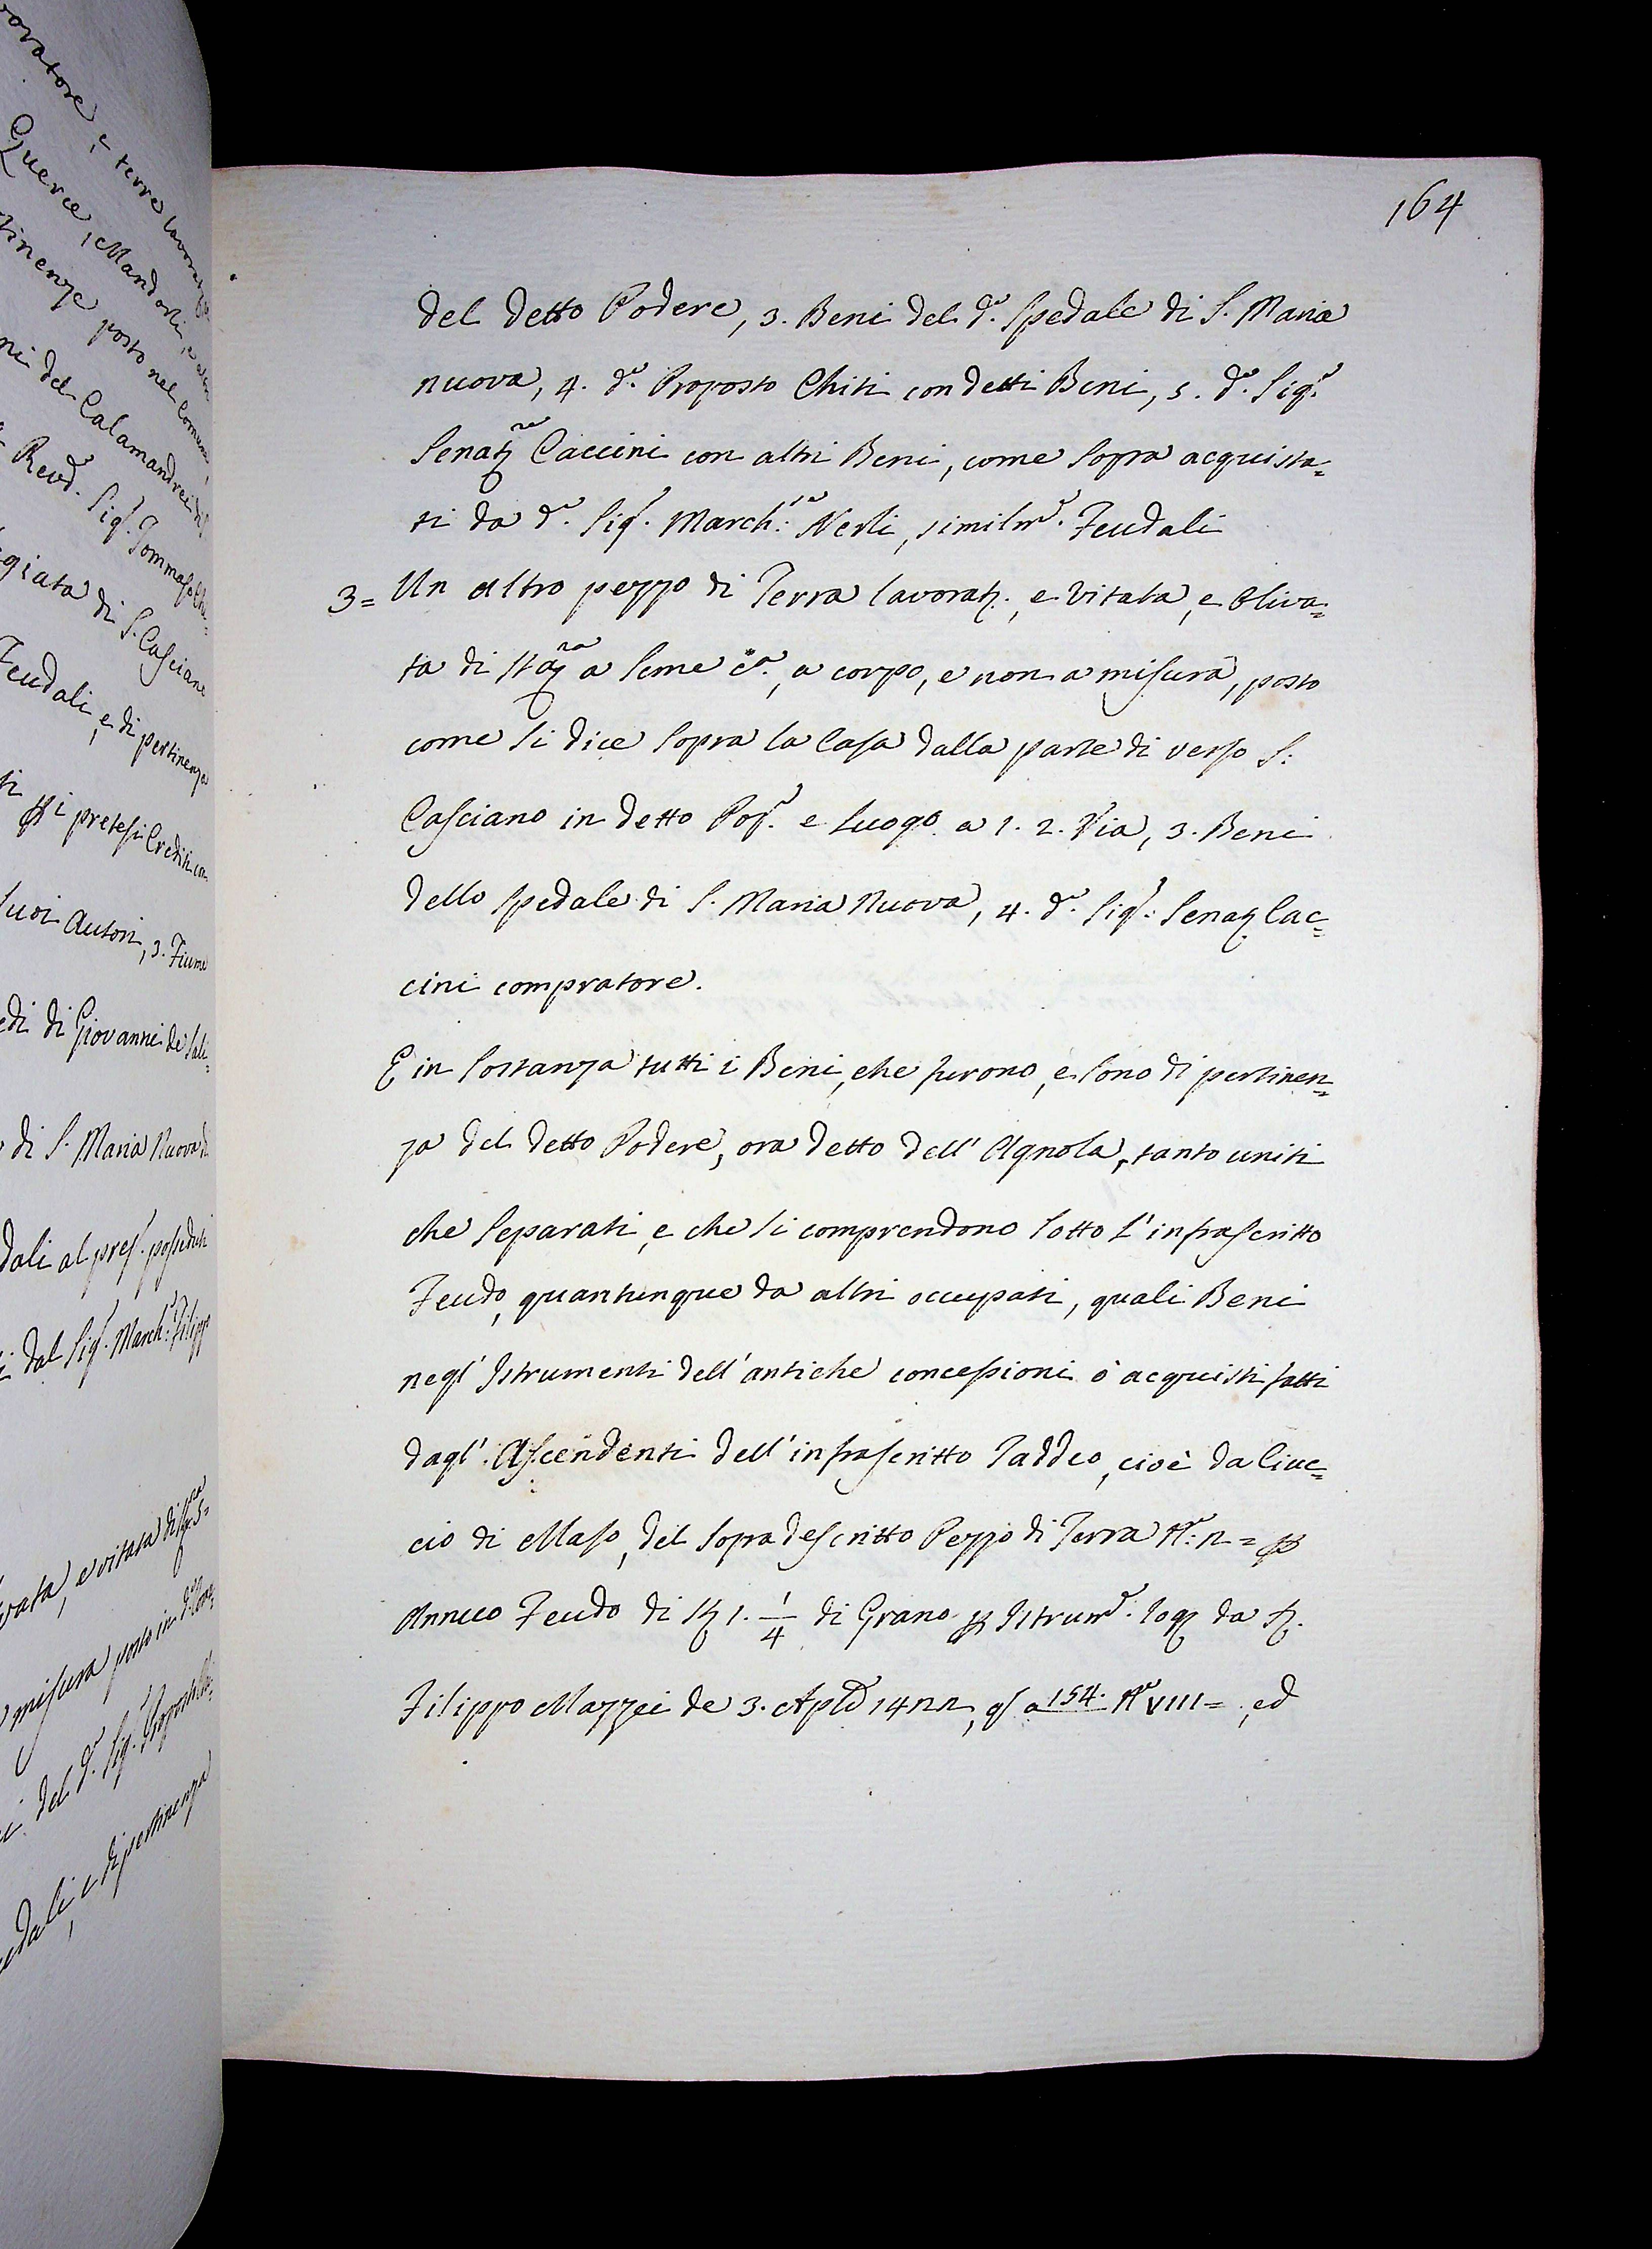 164
del detto Podere, 3. Beni del d.º Spedale di S. Maria
nuova, 4. d.º Proposto Chiti con detti Beni, 5. d.º Sig.ʳ
Senat.ʳᵉ Caccini con altri Beni, come sopra acquista=
ti da d.º Sig.ʳ March.ˢᵉ Nerli, similm.ᵉ Feudali
3= Un altro pezzo di Terra lavorat., e vitata, e Oliva=
ta di a seme c.ª, a corpo, e non a misura, posto
come si dice sopra la Casa dalla parte di verso S:
Casciano in detto Pop.º e Luogo a 1. 2. Via, 3. Beni
dello spedale di S. Maria Nuova, 4. d.º Sig.ʳ Senat. Cac=
cini compratore.
E in sostanza tutti i Beni, che furono, e sono di pertinen=
za del detto Podere, ora detto dell' Agnola, tanto uniti
che separati, e che si comprendono sotto l'infrascritto
Feudo, quantunque da altri occupati, quali Beni
negl' Istrumenti dell'antiche concessioni ò acquisti fatti
dagl' Ascendenti dell'infrascritto Taddeo, cioè da Ciuc=
cio di Maso, del sopradescritto Pezzo di Terra N.º 2= ꝑ
Annuo Feudo di St. 1. 1/4 di Grano ꝑ Istrum.º rog. da S.
Filippo Mazzei de 3. Aple 1422, q.º a 154. N.º VIII=, ed
ovatore, e terre lavorat
Querce, Mandorli, e altri
tinenze posto nel Comune
ni del Calamandrei di
Revd. Sig.ʳ Tommaso Chi=
giata di S. Casciano
Feudali, e di pertinenza
ti ꝑ i pretesi Crediti con
suoi Autori, 3. Fiume
edi di Giovanni de Sali=
di S. Maria Nuova di
dali al pres. posseduti
dal Sig.ʳ March.ˢᵉ Filippo
vata, e vitata di
misura posto in d.º
del d.º Sig.ʳ
edali, e di pertinenza